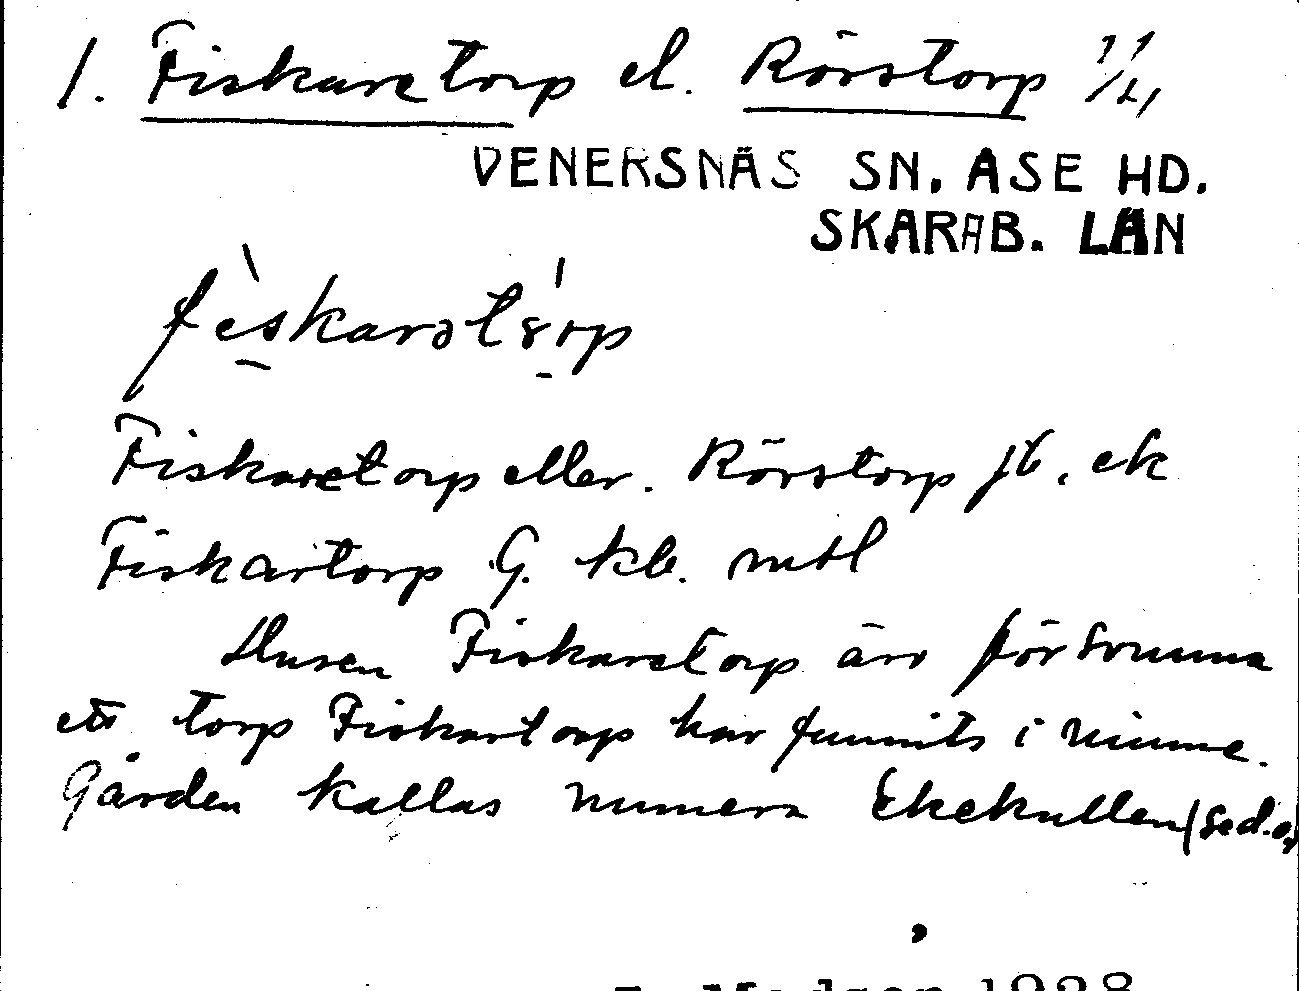 1. Fiskaretorp el. Rörstorp 1/4
VENERSNÄS SN. ÅSE HD.
SKARAB. LÄN
fèskarətórp
Fiskaretorp eller. Rörstorp jb, ek
Fiskartorp G. kb. mtl
Husen Fiskaretorp äro försvunna
ett torp Fiskartorp har funnits i minne.
Gården kallas numera Ekekullen (se d.o.)
1928